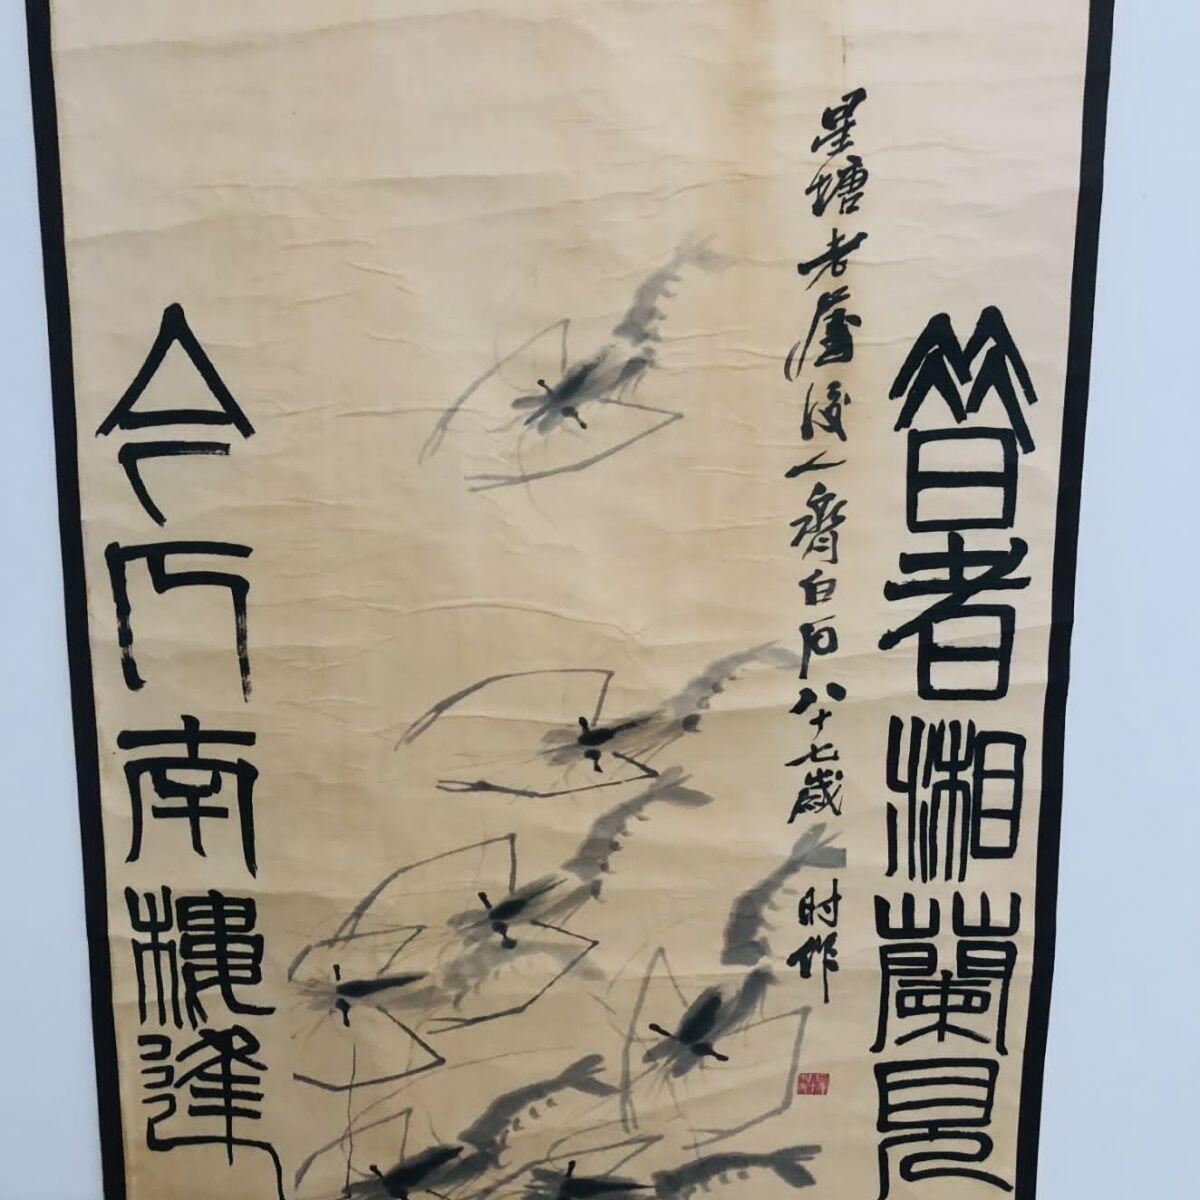 昔者湘蘭見
星塘老屋後人齊白石八十七歲时作
今門南樓逢